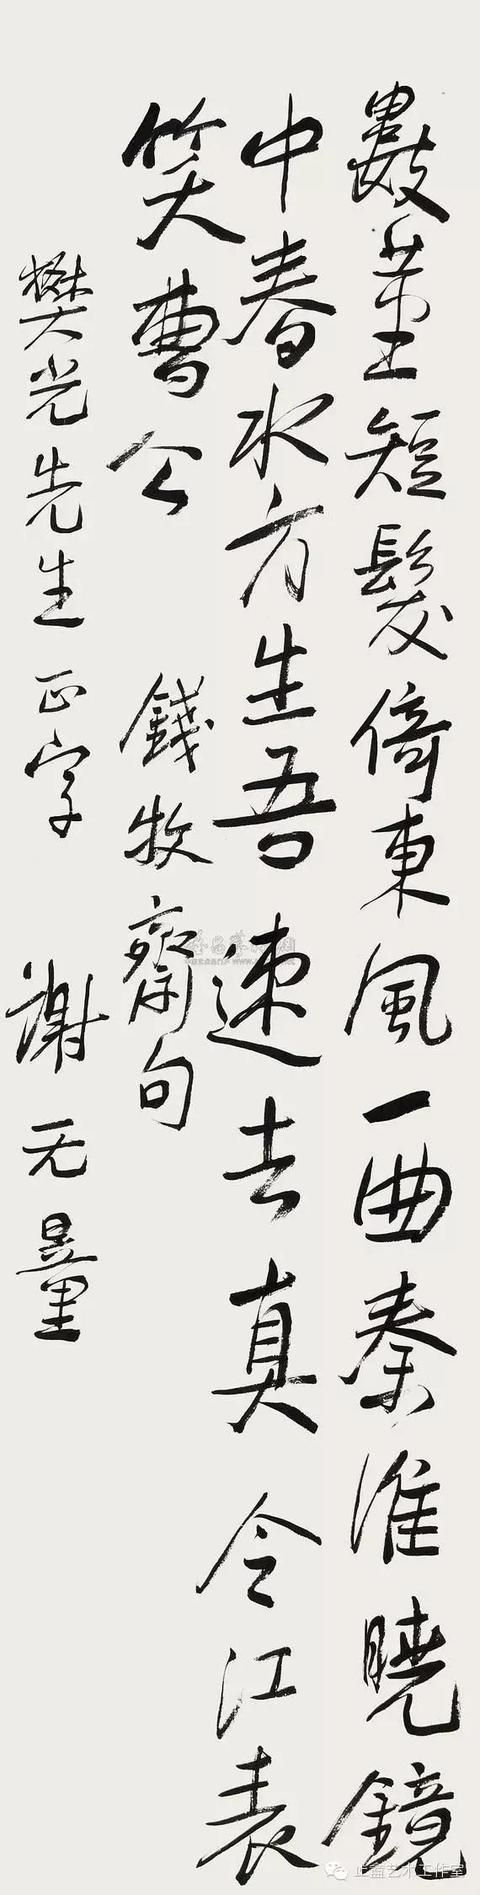 數莖短髮倚東風一曲秦淮曉鏡
中春水方生吾速去真令江表
笑曹公 錢牧齋句
樊光先生正字 謝无量
止盦艺术工作室